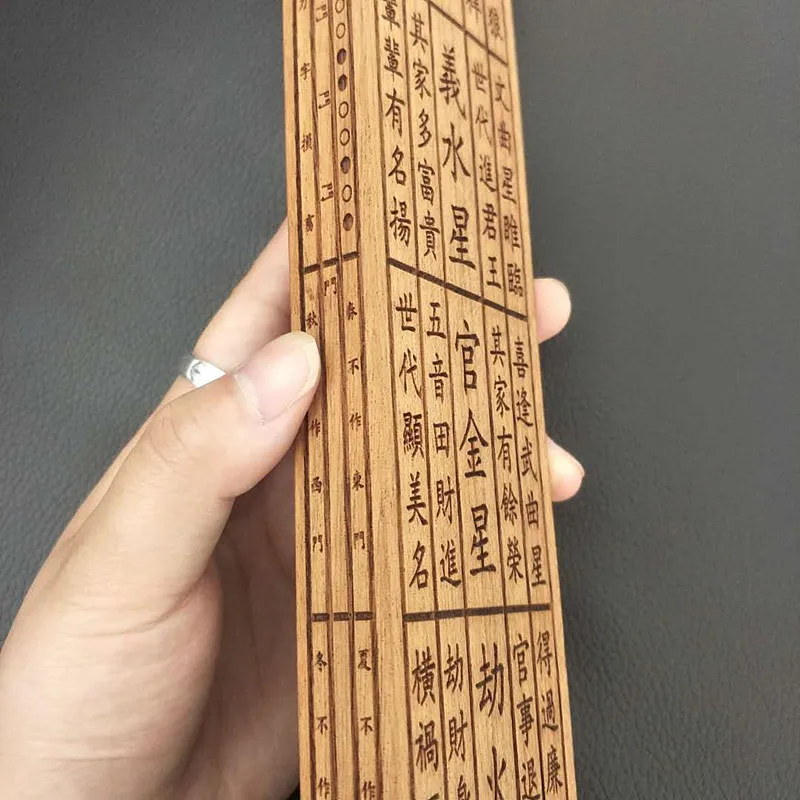 文曲星雎臨
世代進君王
義水星
其家多富貴
輩輩有名揚
喜逢武曲星
其家有餘榮
官金星
五音田財進
世代顯美名
得過廉
官事退
劫火
劫財
橫禍
春不作東門
門
秋
作西門
夏不作
冬不作
字損